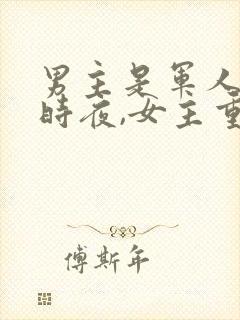 男主是军人
時夜,女主重
傅斯年